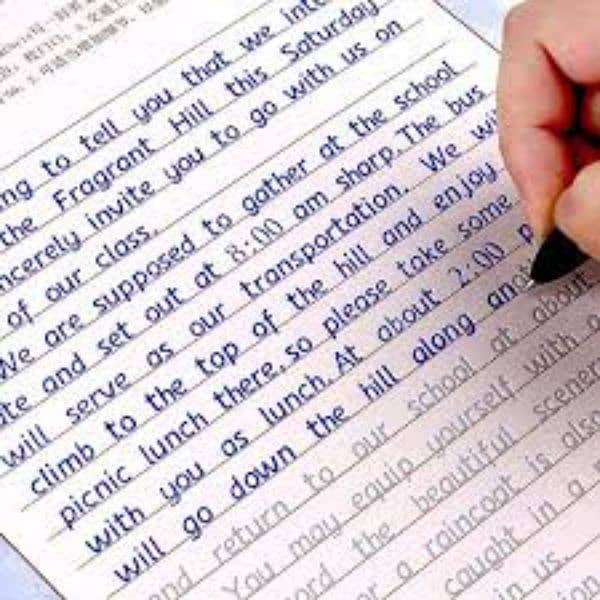 ng to tell you that we inte
the Fragrant Hill this Saturday
ncerely invite you to go with us on
of our class.
We are supposed to gather at the school
te and set out at 8:00 am sharp. The bus
will serve as our transportation. We wi
climb to the top of the hill and enjoy
picnic lunch there, so please take some
with you as lunch. At about 2:00 p
will go down the hill along ano
and return to our school at about
You may equip yourself with a
ord the beautiful scener
or a raincoat is also
caught in a
in us.